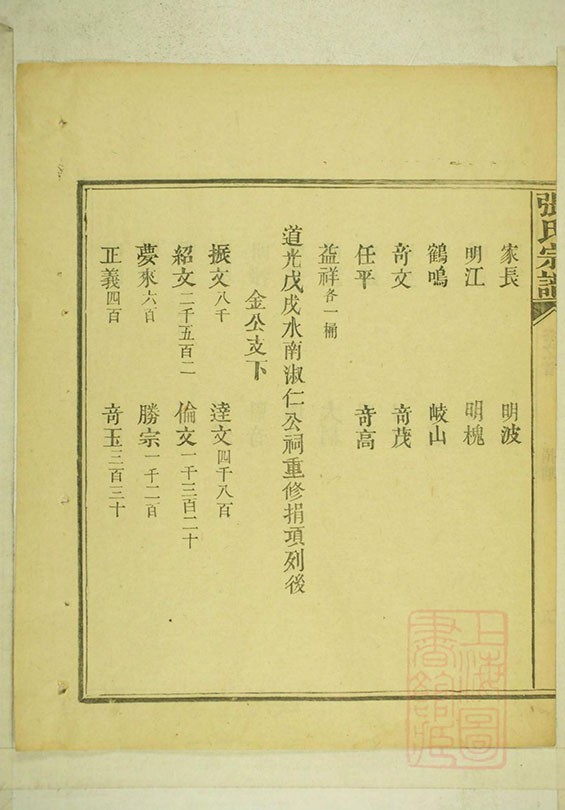 張氏宗譜
家長 明波
明江 明槐
鶴鳴 岐山
竒文 竒茂
任平 竒高
益祥各一桶
道光戊戌水南淑仁公祠重修捐項列後
金公支下
振文八千 達文四千八百
紹文二千五百二 倫文一千三百二十
夢來六百 勝宗一千二百
正義四百 竒玉三百三十
上海圖書館藏